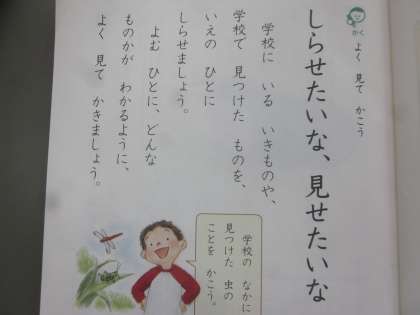 かく
よく 見て かこう
しらせたいな、見せたいな
学校に いる いきものや、
学校で 見つけた ものを、
いえの ひとに
しらせましょう。
よむ ひとに、どんな
ものかが わかるように、
よく 見て かきましょう。
学校の なかに
見つけた 虫の
ことを かこう。